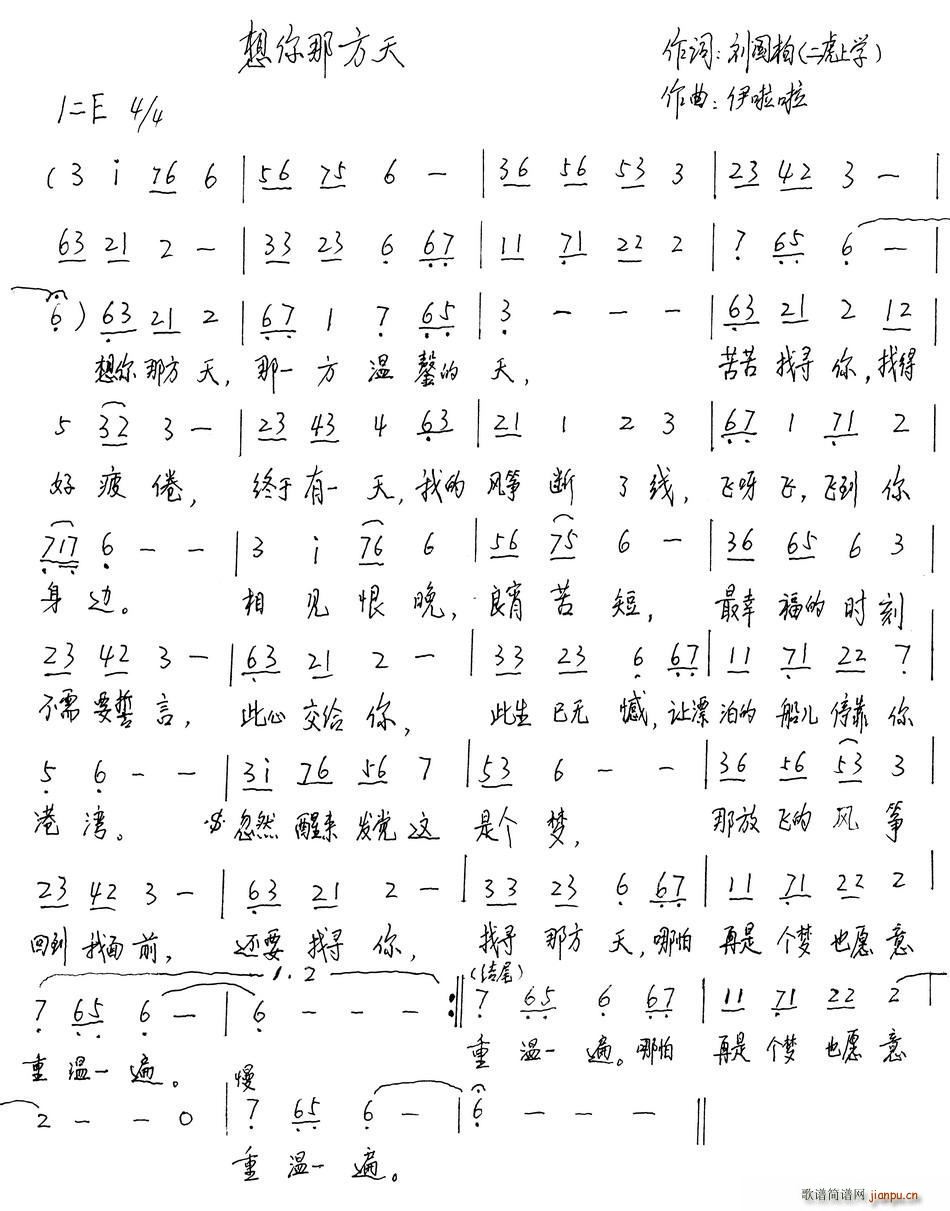 想你那方天
作词：刘国柏（二虎上学）
作曲：伊啦啦
1=E 4/4
( 3 i 76 6 | 56 75 6 - | 36 56 53 3 | 23 42 3 - |
63 21 2 - | 33 23 6 67 | 11 71 22 2 | 7 65 6 - |
6 ) 63 21 2 | 67 1 7 65 | 3 - - - | 63 21 2 12 |
想你那方天，那一方温馨的天，苦苦找寻你，找得
5 32 3 - | 23 43 4 63 | 21 1 2 3 | 67 1 71 2 |
好疲倦，终于有一天，我的风筝断了线，飞呀飞，飞到你
717 6 - - | 3 i 76 6 | 56 75 6 - | 36 65 6 3 |
身边。相见恨晚，良宵苦短，最幸福的时刻
23 42 3 - | 63 21 2 - | 33 23 6 67 | 11 71 22 7 |
不需要誓言，此心交给你，此生已无憾，让漂泊的船儿停靠你
5 6 - - | 3i 76 56 7 | 53 6 - - | 36 56 53 3 |
港湾。𝄋忽然醒来发觉这是个梦，那放飞的风筝
23 42 3 - | 63 21 2 - | 33 23 6 67 | 11 71 22 2 |
回到我面前，还要找寻你，找寻那方天，哪怕再是个梦也愿意
1.2 (结尾)
7 65 6 - | 6 - - - :|| 7 65 6 67 | 11 71 22 2 |
重温一遍。重温一遍。哪怕再是个梦也愿意
慢
2 - - 0 | 7 65 6 - | 6 - - - ||
重温一遍。
歌谱简谱网 jianpu.cn